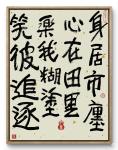 身居市廛
心在田里
樂我糊塗
笑彼追逐